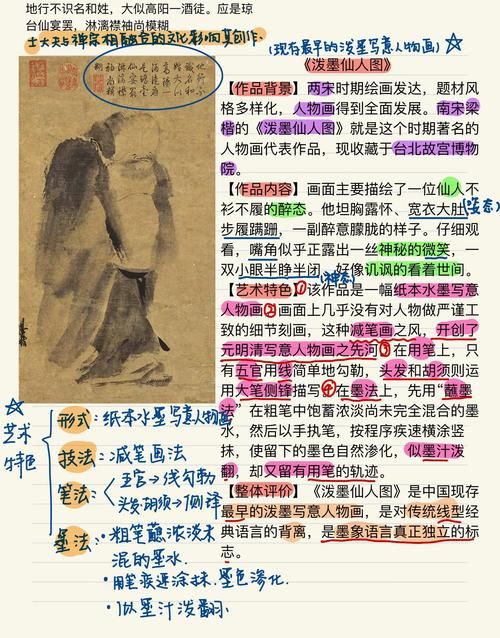 地行不识名和姓，大似高阳一酒徒。应是琼
台仙宴罢，淋漓襟袖尚模糊
士大夫与禅宗相融合的文化影响其创作。
(现存最早的泼墨写意人物画)☆
《泼墨仙人图》
地行不
识名和
姓大似
高阳一
酒徒应
是琼台
仙宴罢
淋漓襟
袖尚模
糊
【作品背景】两宋时期绘画发达，题材风
格多样化，人物画得到全面发展。南宋梁
楷的《泼墨仙人图》就是这个时期著名的
人物画代表作品，现收藏于台北故宫博物
院。
【作品内容】画面主要描绘了一位仙人不
衫不履的醉态。他坦胸露怀、宽衣大肚(姿态)
步履蹒跚，一副醉意朦胧的样子。仔细观
看，嘴角似乎正露出一丝神秘的微笑，一
双小眼半睁半闭，好像讥讽的看着世间。
(神态)
【艺术特色】①该作品是一幅纸本水墨写意
人物画②画面上几乎没有对人物做严谨工
致的细节刻画，这种减笔画之风，开创了
元明清写意人物画之先河③在用笔上，只
有五官用线简单地勾勒，头发和胡须则运
用大笔侧锋描写④在墨法上，先用“蘸墨
法”在粗笔中饱蓄浓淡尚未完全混合的墨
水，然后以手执笔，按程序疾速横涂竖
抹，使留下的墨色自然渗化，似墨汁泼
翻，却又留有用笔的轨迹。
【整体评价】《泼墨仙人图》是中国现存
最早的泼墨写意人物画，是对传统线型经
典语言的背离，是墨象语言真正独立的标
志。
☆
艺术
特色
形式：纸本水墨写意人物画
技法：减笔画法
笔法：五官→线勾勒
头发、胡须→侧锋
墨法：·粗笔蘸浓淡未
混的墨水.
·用笔疾速涂抹.墨色渗化.
·似墨汁泼翻.